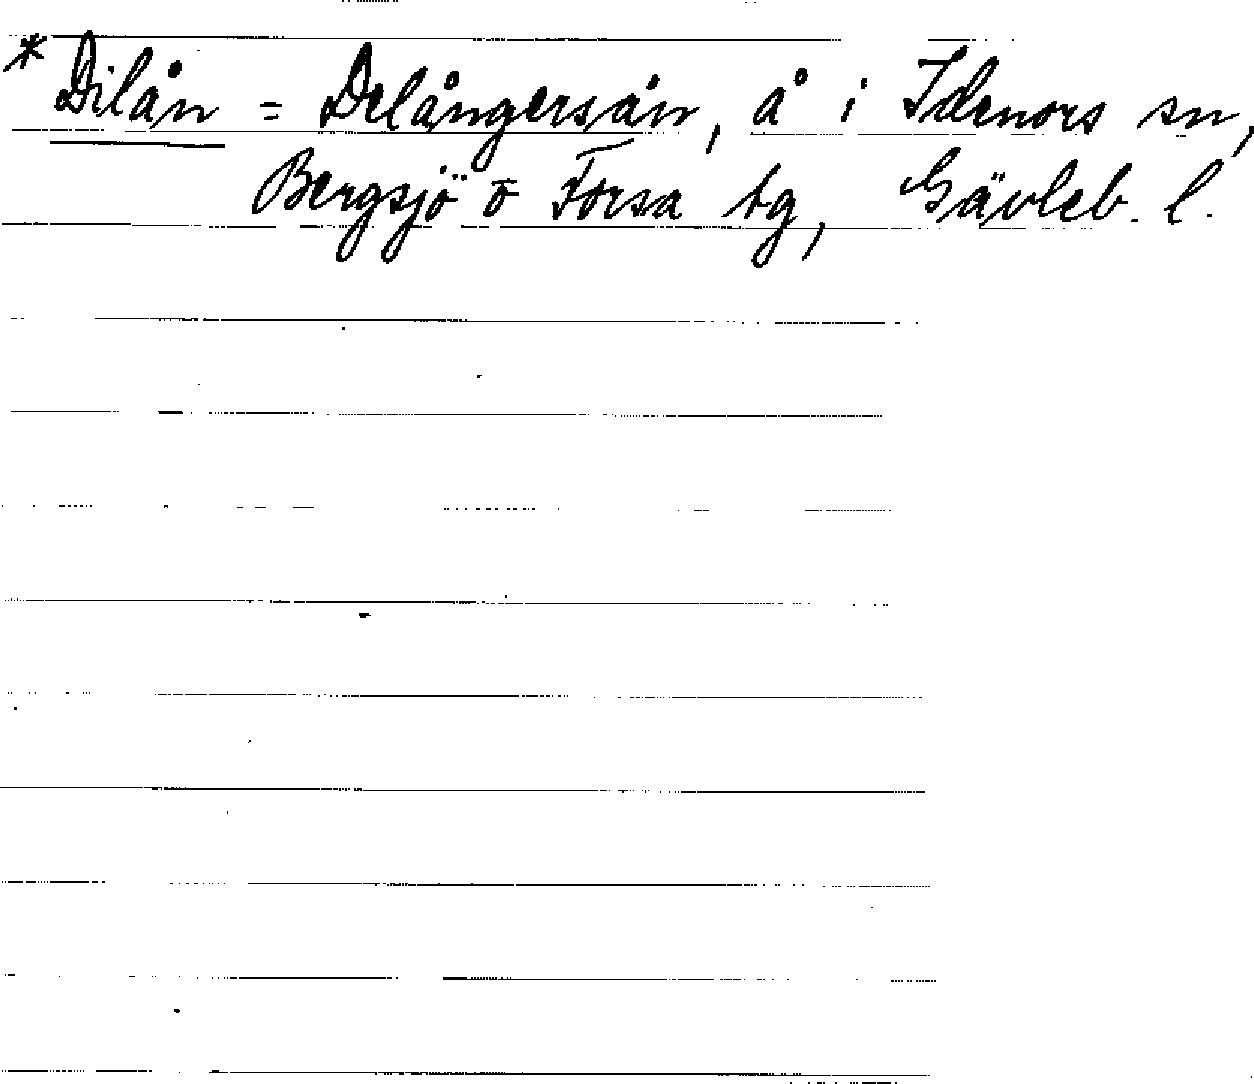 * Dilån = Delångersån, å i Idenors sn,
Bergsjö o Forsa tg, Gävleb. l.